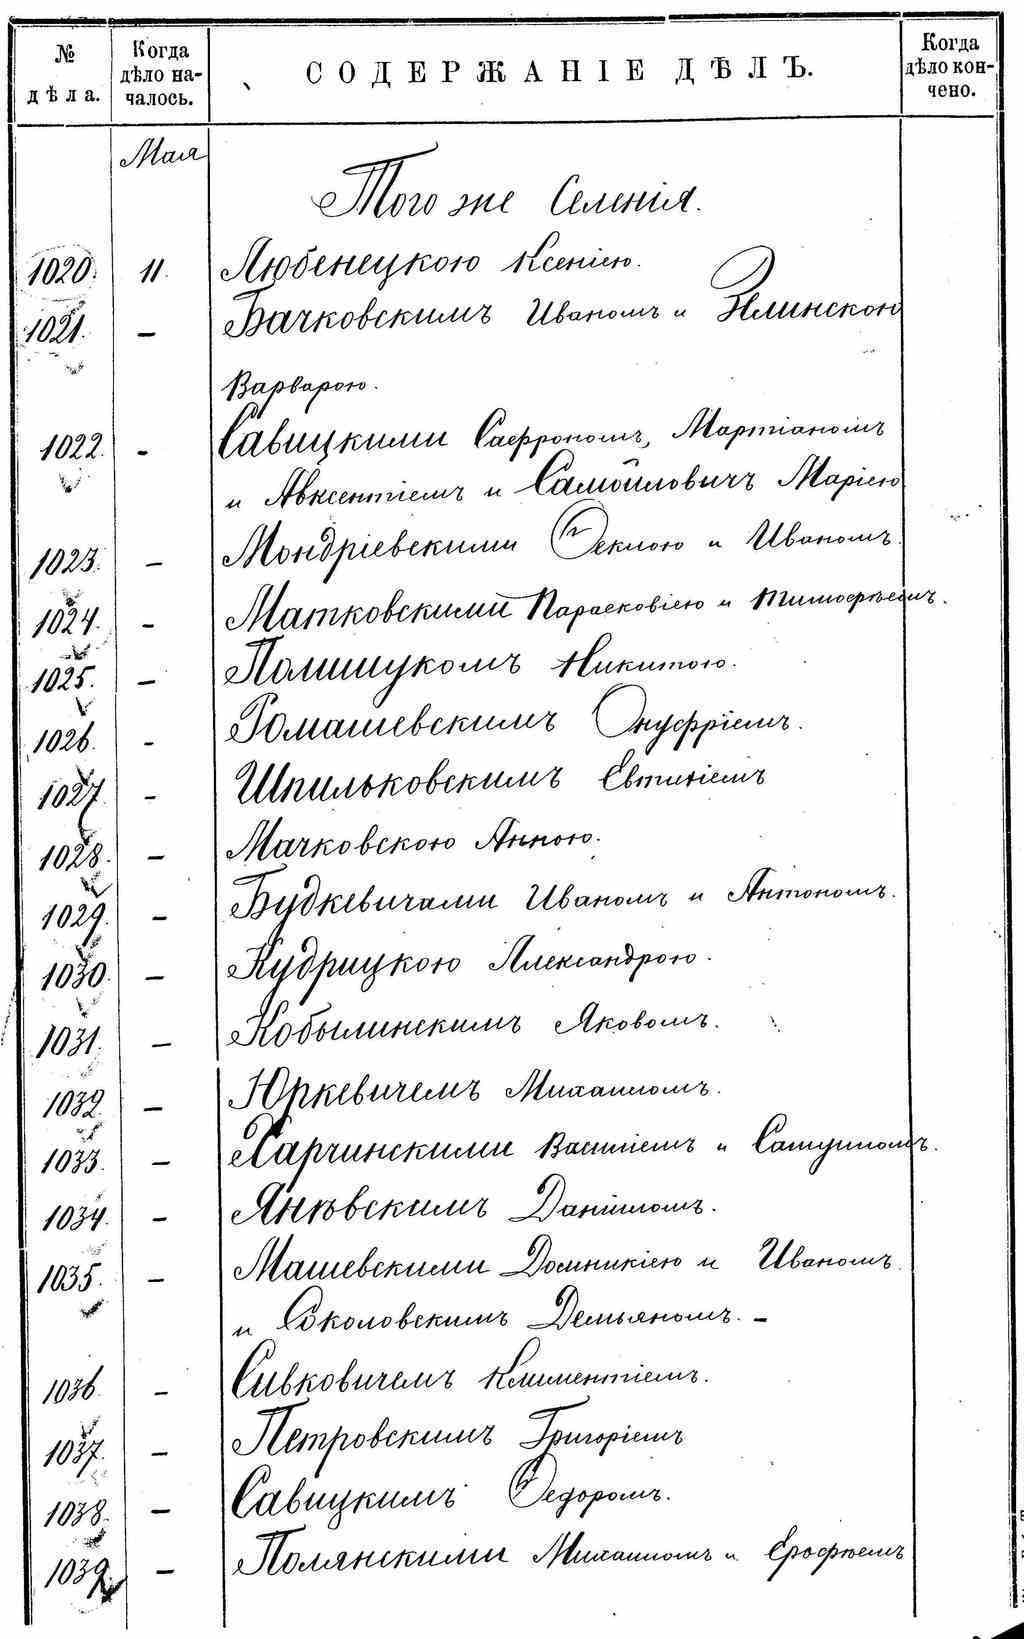 № дѣла. Когда дѣло началось. СОДЕРЖАНІЕ ДѢЛЪ. Когда дѣло кончено.
Мая
Того же Селенія.
1020. 11. Любенецкою Ксеніею.
1021. — Бачковскимъ Иваномъ и Ялинскою
Варварою.
1022. - Савицкими Сафрономъ, Мартіаномъ
и Авксентіемъ и Самойловичъ Маріею
1023. — Мондріевскими Ѳеклою и Иваномъ.
1024. - Матковскими Параскевіею и Тимофѣемъ.
1025. — Полищукомъ Никитою.
1026. - Ромашевскимъ Онуфріемъ.
1027. - Шпильковскимъ Евтихіемъ
1028. — Мачковскою Анною.
1029. — Будкевичами Иваномъ и Антономъ.
1030. — Кудрицкою Александрою.
1031. — Кобылинскимъ Яковомъ.
1032. — Юркевичемъ Михаиломъ.
1033. — Харчинскими Василіемъ и Самуиломъ.
1034. — Янѣвскимъ Даніиломъ.
1035. — Машевскими Домникіею и Иваномъ
и Соколовскимъ Демьяномъ. —
1036. — Сивковичемъ Климентіемъ.
1037. — Петровскимъ Григоріемъ
1038. — Савицкимъ Ѳедоромъ.
1039. — Полянскими Михаиломъ и Ерофѣемъ